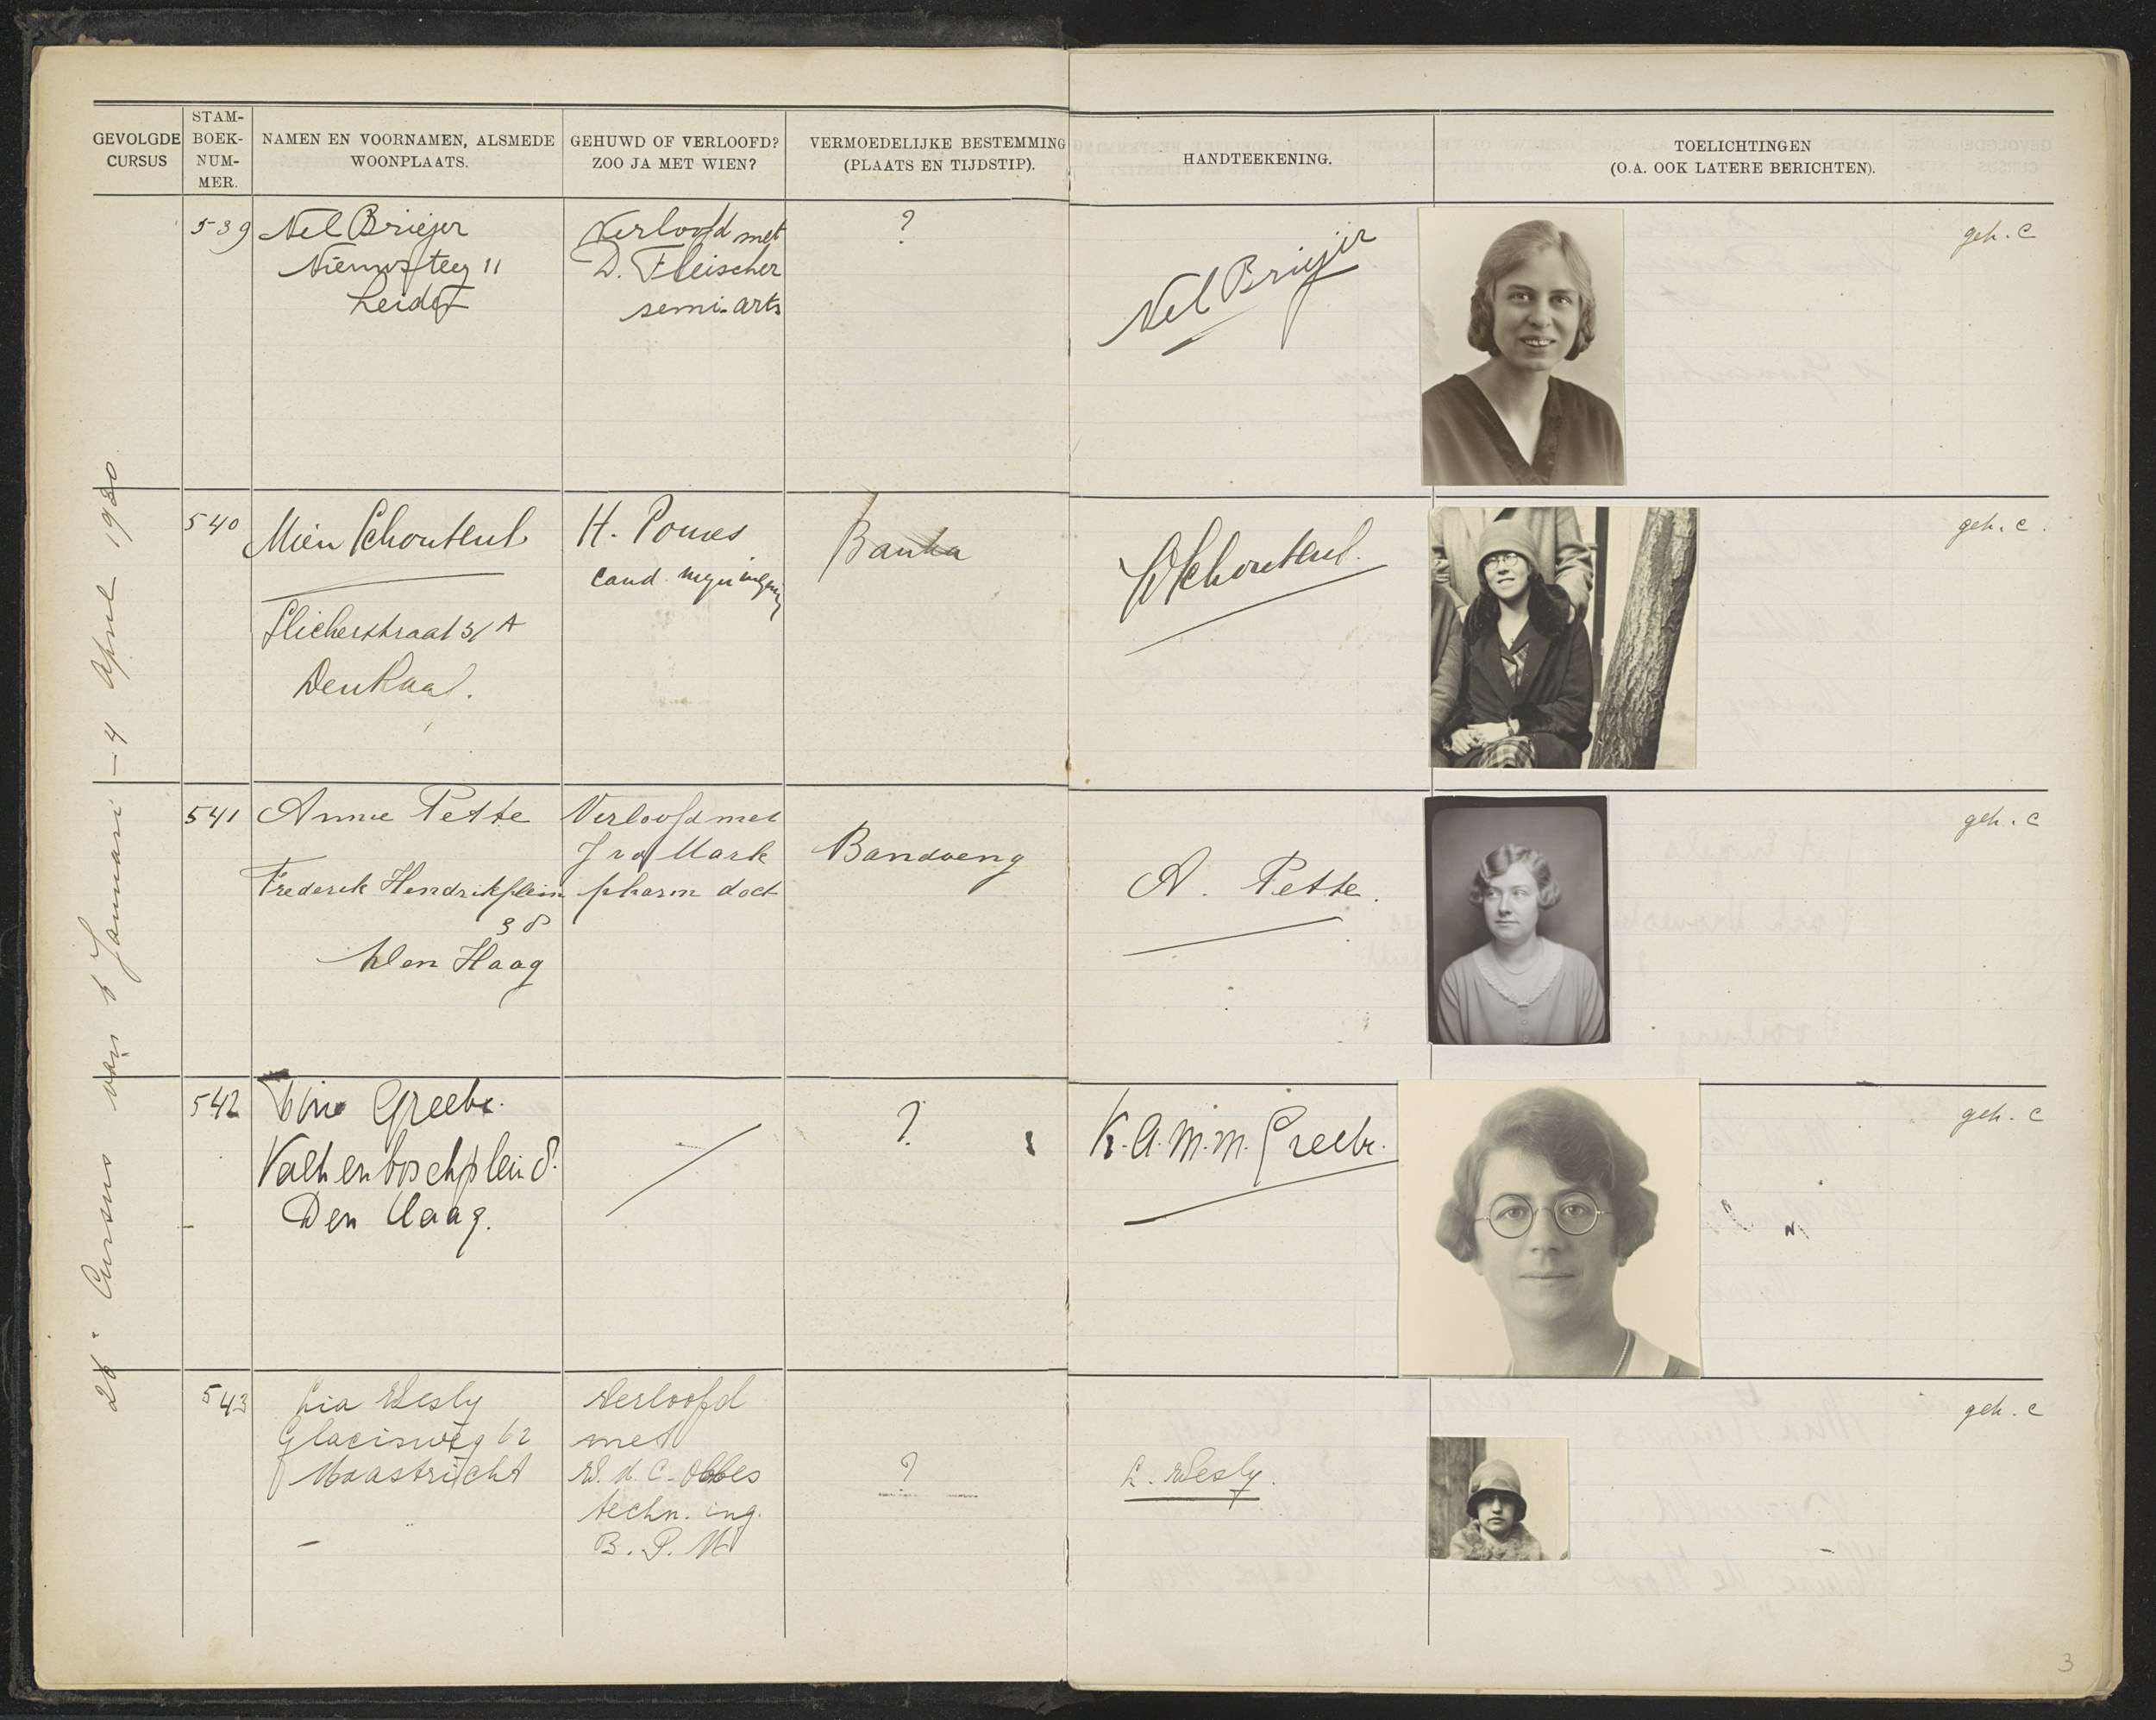 GEVOLGDE
CURSUS
STAM-
BOEK-
NUM-
MER.
NAMEN EN VOORNAMEN, ALSMEDE
WOONPLAATS.
GEHUWD OF VERLOOFD?
ZOO JA MET WIEN?
VERMOEDELIJKE BESTEMMING
(PLAATS EN TIJDSTIP).
HANDTEEKENING.
TOELICHTINGEN
(O.A. OOK LATERE BERICHTEN).
26e Cursus van 6 Januari - 4 April 1930
539
Nel Briejer
Nieuwsteeg 11
Leiden
Verloofd met
D. Fleischer
semi-arts
?
Nel Briejer
geh. C
540
Mien Schouten
31 A
Den Haag.
H. Poures
cand.
Banka
Schouten.
geh. C.
541
Annie Pette
Frederik Hendrikplein
38
Den Haag
Verloofd met
J v d Mark
pharm doct
Bandoeng
A. Pette.
geh. C
542
Greebe.
Valkenboschplein 8.
Den Haag.
?
K.A.M.M. Greebe.
geh. C
543
Lia Wesly
Glacisweg 62
Maastricht
Verloofd
met
W. H. C. Obbes
techn. ing.
B. P. M
?
L. Wesly.
geh. C
3